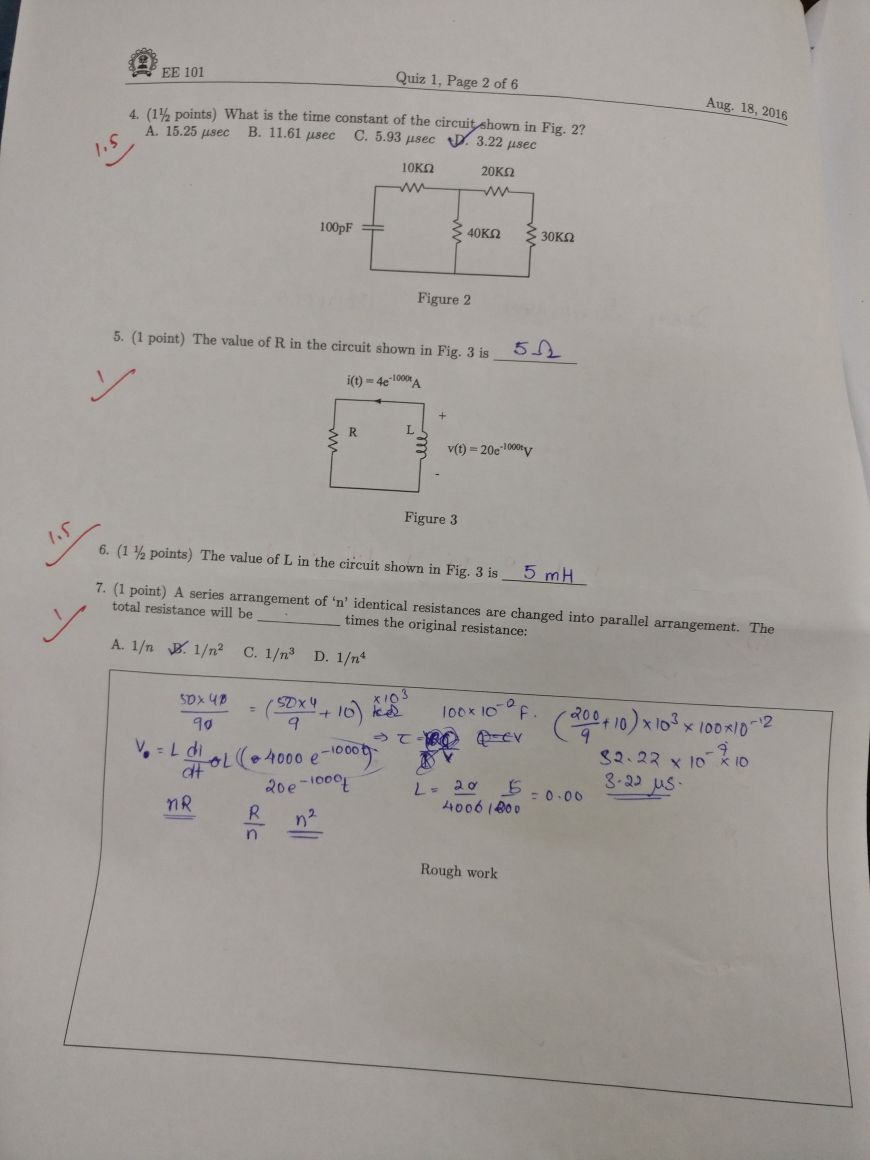 EE 101
Quiz 1, Page 2 of 6
Aug. 18, 2016
4. (1½ points) What is the time constant of the circuit shown in Fig. 2?
A. 15.25 μsec B. 11.61 μsec C. 5.93 μsec D. 3.22 μsec
1.5
10KΩ 20KΩ
100pF 40KΩ 30KΩ
Figure 2
5. (1 point) The value of R in the circuit shown in Fig. 3 is 5 Ω
1
i(t) = 4e^-1000t A
+
R L
v(t) = 20e^-1000t V
-
Figure 3
1.5
6. (1 ½ points) The value of L in the circuit shown in Fig. 3 is 5 mH
7. (1 point) A series arrangement of 'n' identical resistances are changed into parallel arrangement. The
1
total resistance will be ________ times the original resistance:
A. 1/n B. 1/n² C. 1/n³ D. 1/n⁴
50×40/90 = (50×4/9 + 10) ×10³ 100×10^-12 F. (200/9 + 10) × 10³ × 100×10^-12
⇒ τ =
32.22 × 10^-9 × 10
V = L di/dt L(-4000 e^-1000t)
20e^-1000t
L = 20/4000 5/1000 = 0.00
3.22 μs.
nR
R/n n²
Rough work